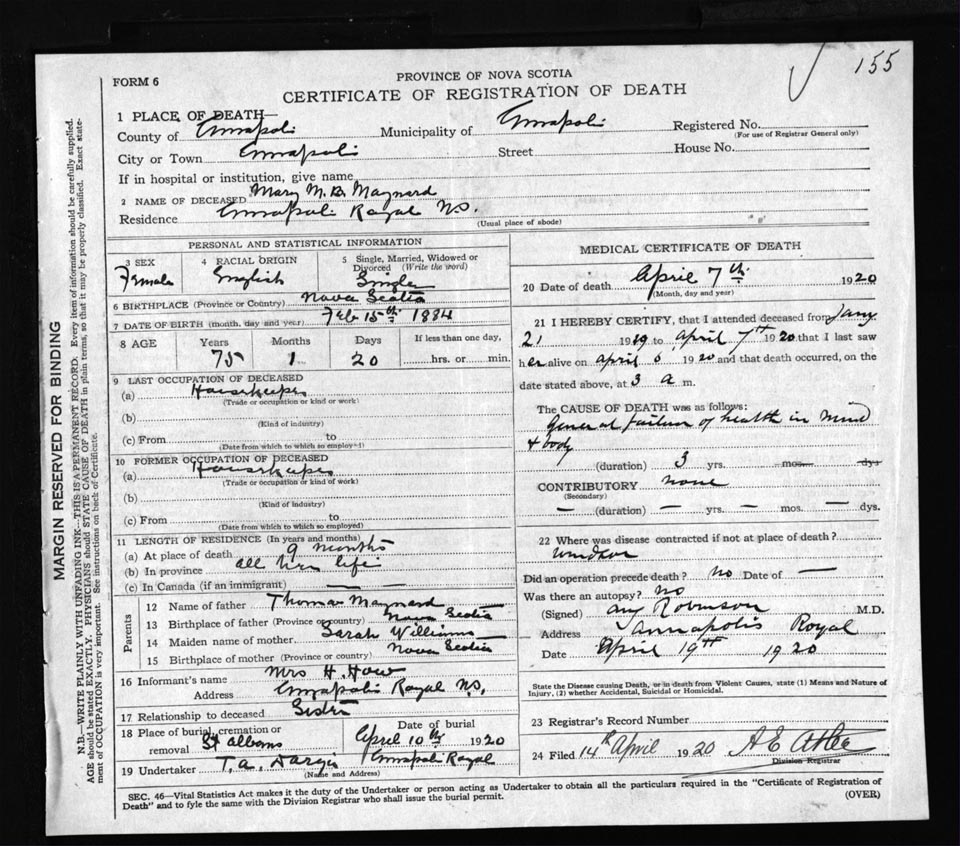 155
FORM 6
PROVINCE OF NOVA SCOTIA
CERTIFICATE OF REGISTRATION OF DEATH
1 PLACE OF DEATH—
County of Annapolis Municipality of Annapolis Registered No.
(For use of Registrar General only)
City or Town Annapolis Street House No.
If in hospital or institution, give name
2 NAME OF DECEASED Mary M. B. Maynard
Residence Annapolis Royal N.S.
(Usual place of abode)
PERSONAL AND STATISTICAL INFORMATION
3 SEX Female
4 RACIAL ORIGIN English
5 Single, Married, Widowed or Divorced (Write the word) Single
6 BIRTHPLACE (Province or Country) Nova Scotia
7 DATE OF BIRTH (month, day and year) Feb 15th 1884
8 AGE Years Months Days If less than one day,
75 1 20 hrs. or min.
9 LAST OCCUPATION OF DECEASED
(a) Housekeeper
(Trade or occupation or kind or work)
(b)
(Kind of industry)
(c) From to
(Date from which to which so employed)
10 FORMER OCCUPATION OF DECEASED
(a) Housekeeper
(Trade or occupation or kind of work)
(b)
(Kind of industry)
(c) From to
(Date from which to which so employed)
11 LENGTH OF RESIDENCE (In years and months)
(a) At place of death 9 months
(b) In province all her life
(c) In Canada (if an immigrant) — —
Parents
12 Name of father Thomas Maynard
13 Birthplace of father (Province or country) Nova Scotia
14 Maiden name of mother Sarah Williams
15 Birthplace of mother (Province or country) Nova Scotia
16 Informant's name Mrs H. How
Address Annapolis Royal N.S.
17 Relationship to deceased Sister
18 Place of burial, cremation or removal St Albans
Date of burial April 10th 1920
19 Undertaker T. A. Annapolis Royal
(Name and Address)
MEDICAL CERTIFICATE OF DEATH
20 Date of death April 7th 1920
(Month, day and year)
21 I HEREBY CERTIFY, that I attended deceased from Jany
21 1919 to April 7th 1920 that I last saw
her alive on April 6 1920 and that death occurred, on the
date stated above, at 3 a m.
The CAUSE OF DEATH was as follows:
General failure of health in mind
& body
(duration) 3 yrs. mos. dys
CONTRIBUTORY none
(Secondary)
— (duration) — yrs. — mos. — dys.
22 Where was disease contracted if not at place of death?
Windsor
Did an operation precede death? No Date of —
Was there an autopsy? No
(Signed) Robinson M.D.
Address Annapolis Royal
Date April 19th 1920
State the Disease causing Death, or in death from Violent Causes, state (1) Means and Nature of
Injury, (2) whether Accidental, Suicidal or Homicidal.
23 Registrar's Record Number
24 Filed 14th April 1920 A E Atlee
Division Registrar
SEC. 46—Vital Statistics Act makes it the duty of the Undertaker or person acting as Undertaker to obtain all the particulars required in the "Certificate of Registration of
Death" and to fyle the same with the Division Registrar who shall issue the burial permit. (OVER)
MARGIN RESERVED FOR BINDING
N.B.—WRITE PLAINLY WITH UNFADING INK—THIS IS A PERMANENT RECORD. Every item of information should be carefully supplied.
AGE should be stated EXACTLY. PHYSICIANS should STATE CAUSE OF DEATH in plain terms, so that it may be properly classified. Exact state-
ment of OCCUPATION is very important. See instructions on back of Certificate.